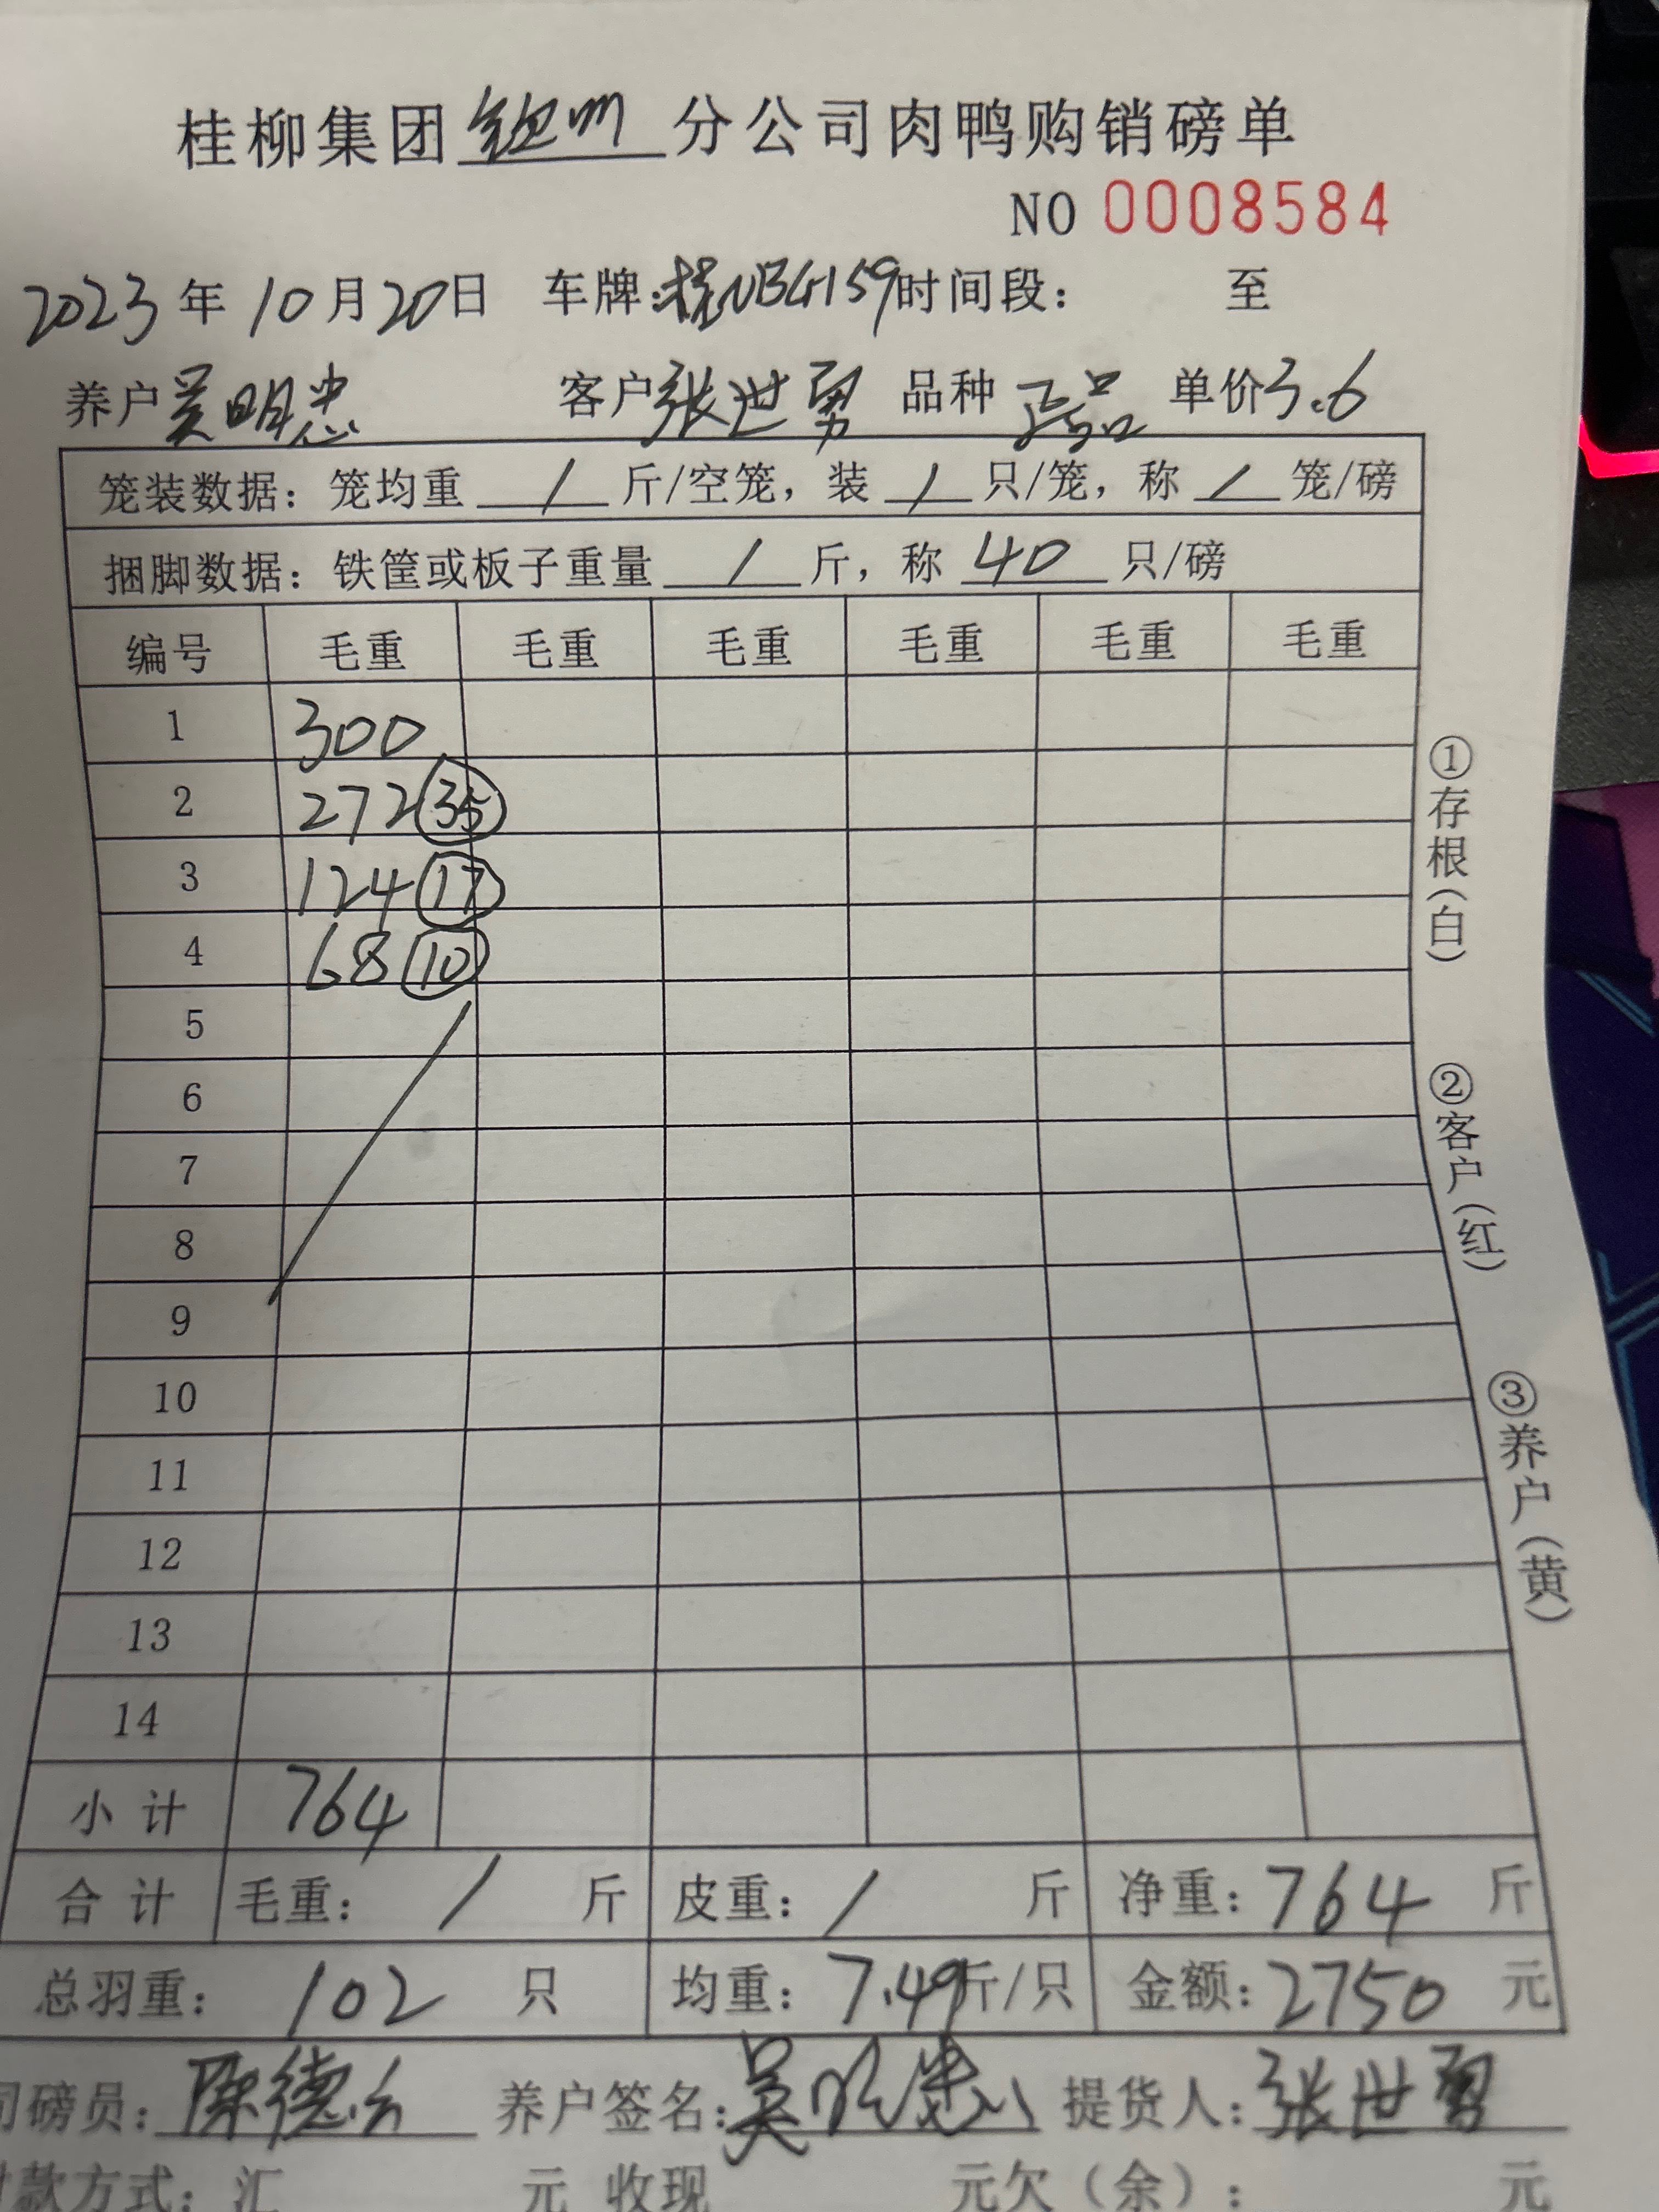 桂柳集团钦州分公司肉鸭购销磅单
NO 0008584
2023年10月20日 车牌:桂NB4159时间段: 至
养户吴明忠 客户张世勇 品种 正品 单价3.6
笼装数据: 笼均重 / 斤/空笼, 装 / 只/笼, 称 / 笼/磅
捆脚数据: 铁筐或板子重量 / 斤, 称 40 只/磅
编号 毛重 毛重 毛重 毛重 毛重 毛重
1 300
2 272 35
3 124 17
4 68 10
5
6
7
8
9
10
11
12
13
14
小计 764
合计 毛重: / 斤 皮重: / 斤 净重: 764 斤
总羽重: 102 只 均重: 7.49斤/只 金额: 2750 元
司磅员: 陈德 养户签名: 吴明忠 提货人: 张世勇
付款方式: 汇 元 收现 元欠(余): 元
①存根(白)
②客户(红)
③养户(黄)